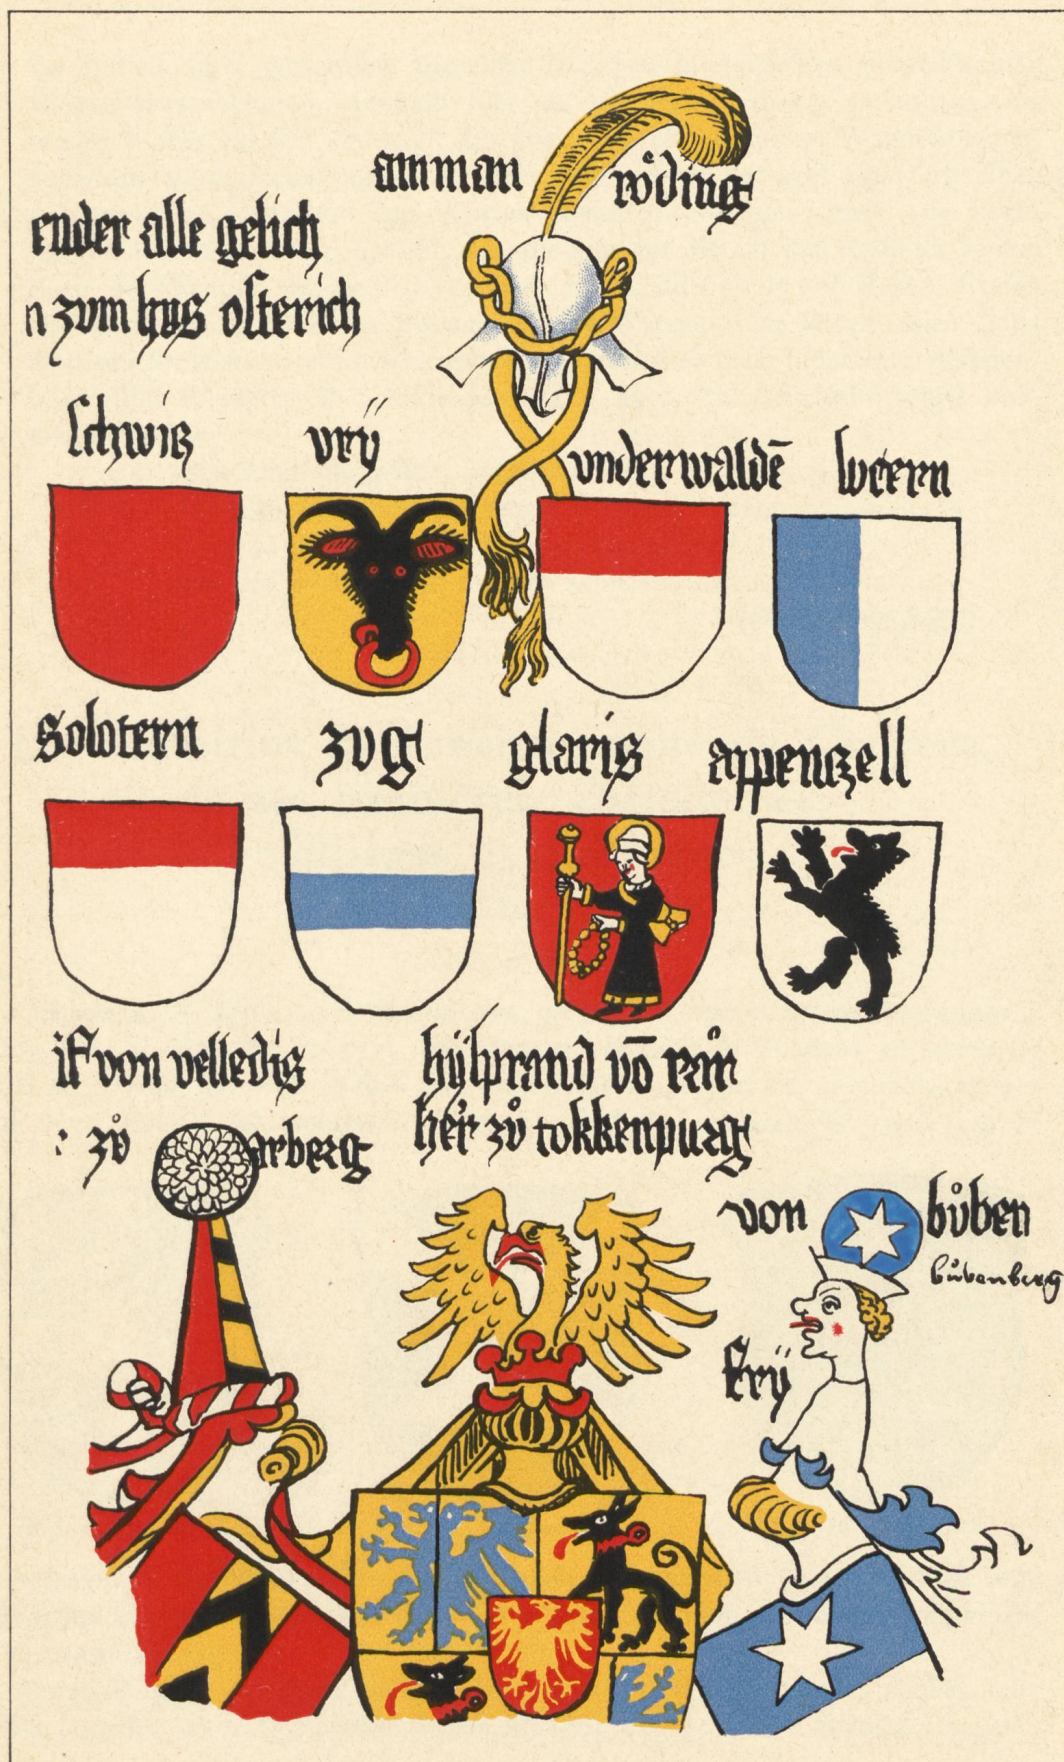 amman röding
ender alle gelich
n zvm hus osterich
schwiz vrÿ vnderwaldē lvcern
Solotern zvg glaris appenczell
if von velledis
: zů arberg
hÿlprand vō rarͦn
her zů tokkenpurg
von bůben
bůbenberg
frÿ